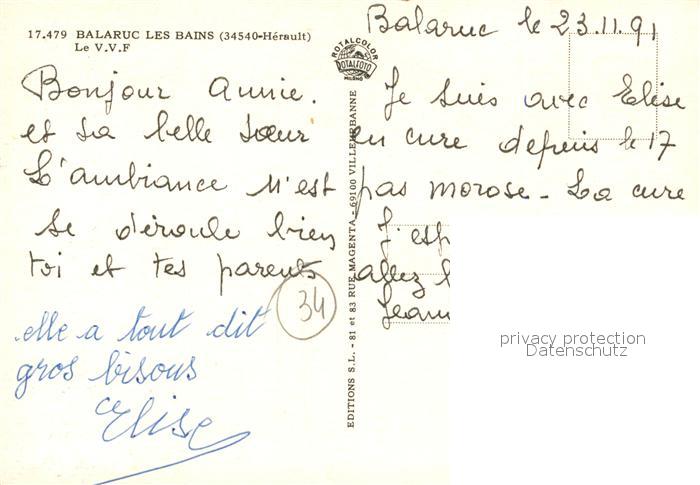 17.479 BALARUC LES BAINS (34540-Hérault)
Le V.V.F
ROTALCOLOR
ROTALFOTO
MILANO
EDITIONS S.L. - 81 et 83 RUE MAGENTA - 69100 VILLEURBANNE
Balaruc le 23.11.91
Bonjour Annie. Je suis avec Elise
et sa belle sœur en cure depuis le 17
L'ambiance n'est pas morose - La cure
se déroule bien J'esp
toi et tes parents allez b
Jeann
34
elle a tout dit
gros bisous
Elise
privacy protection
Datenschutz